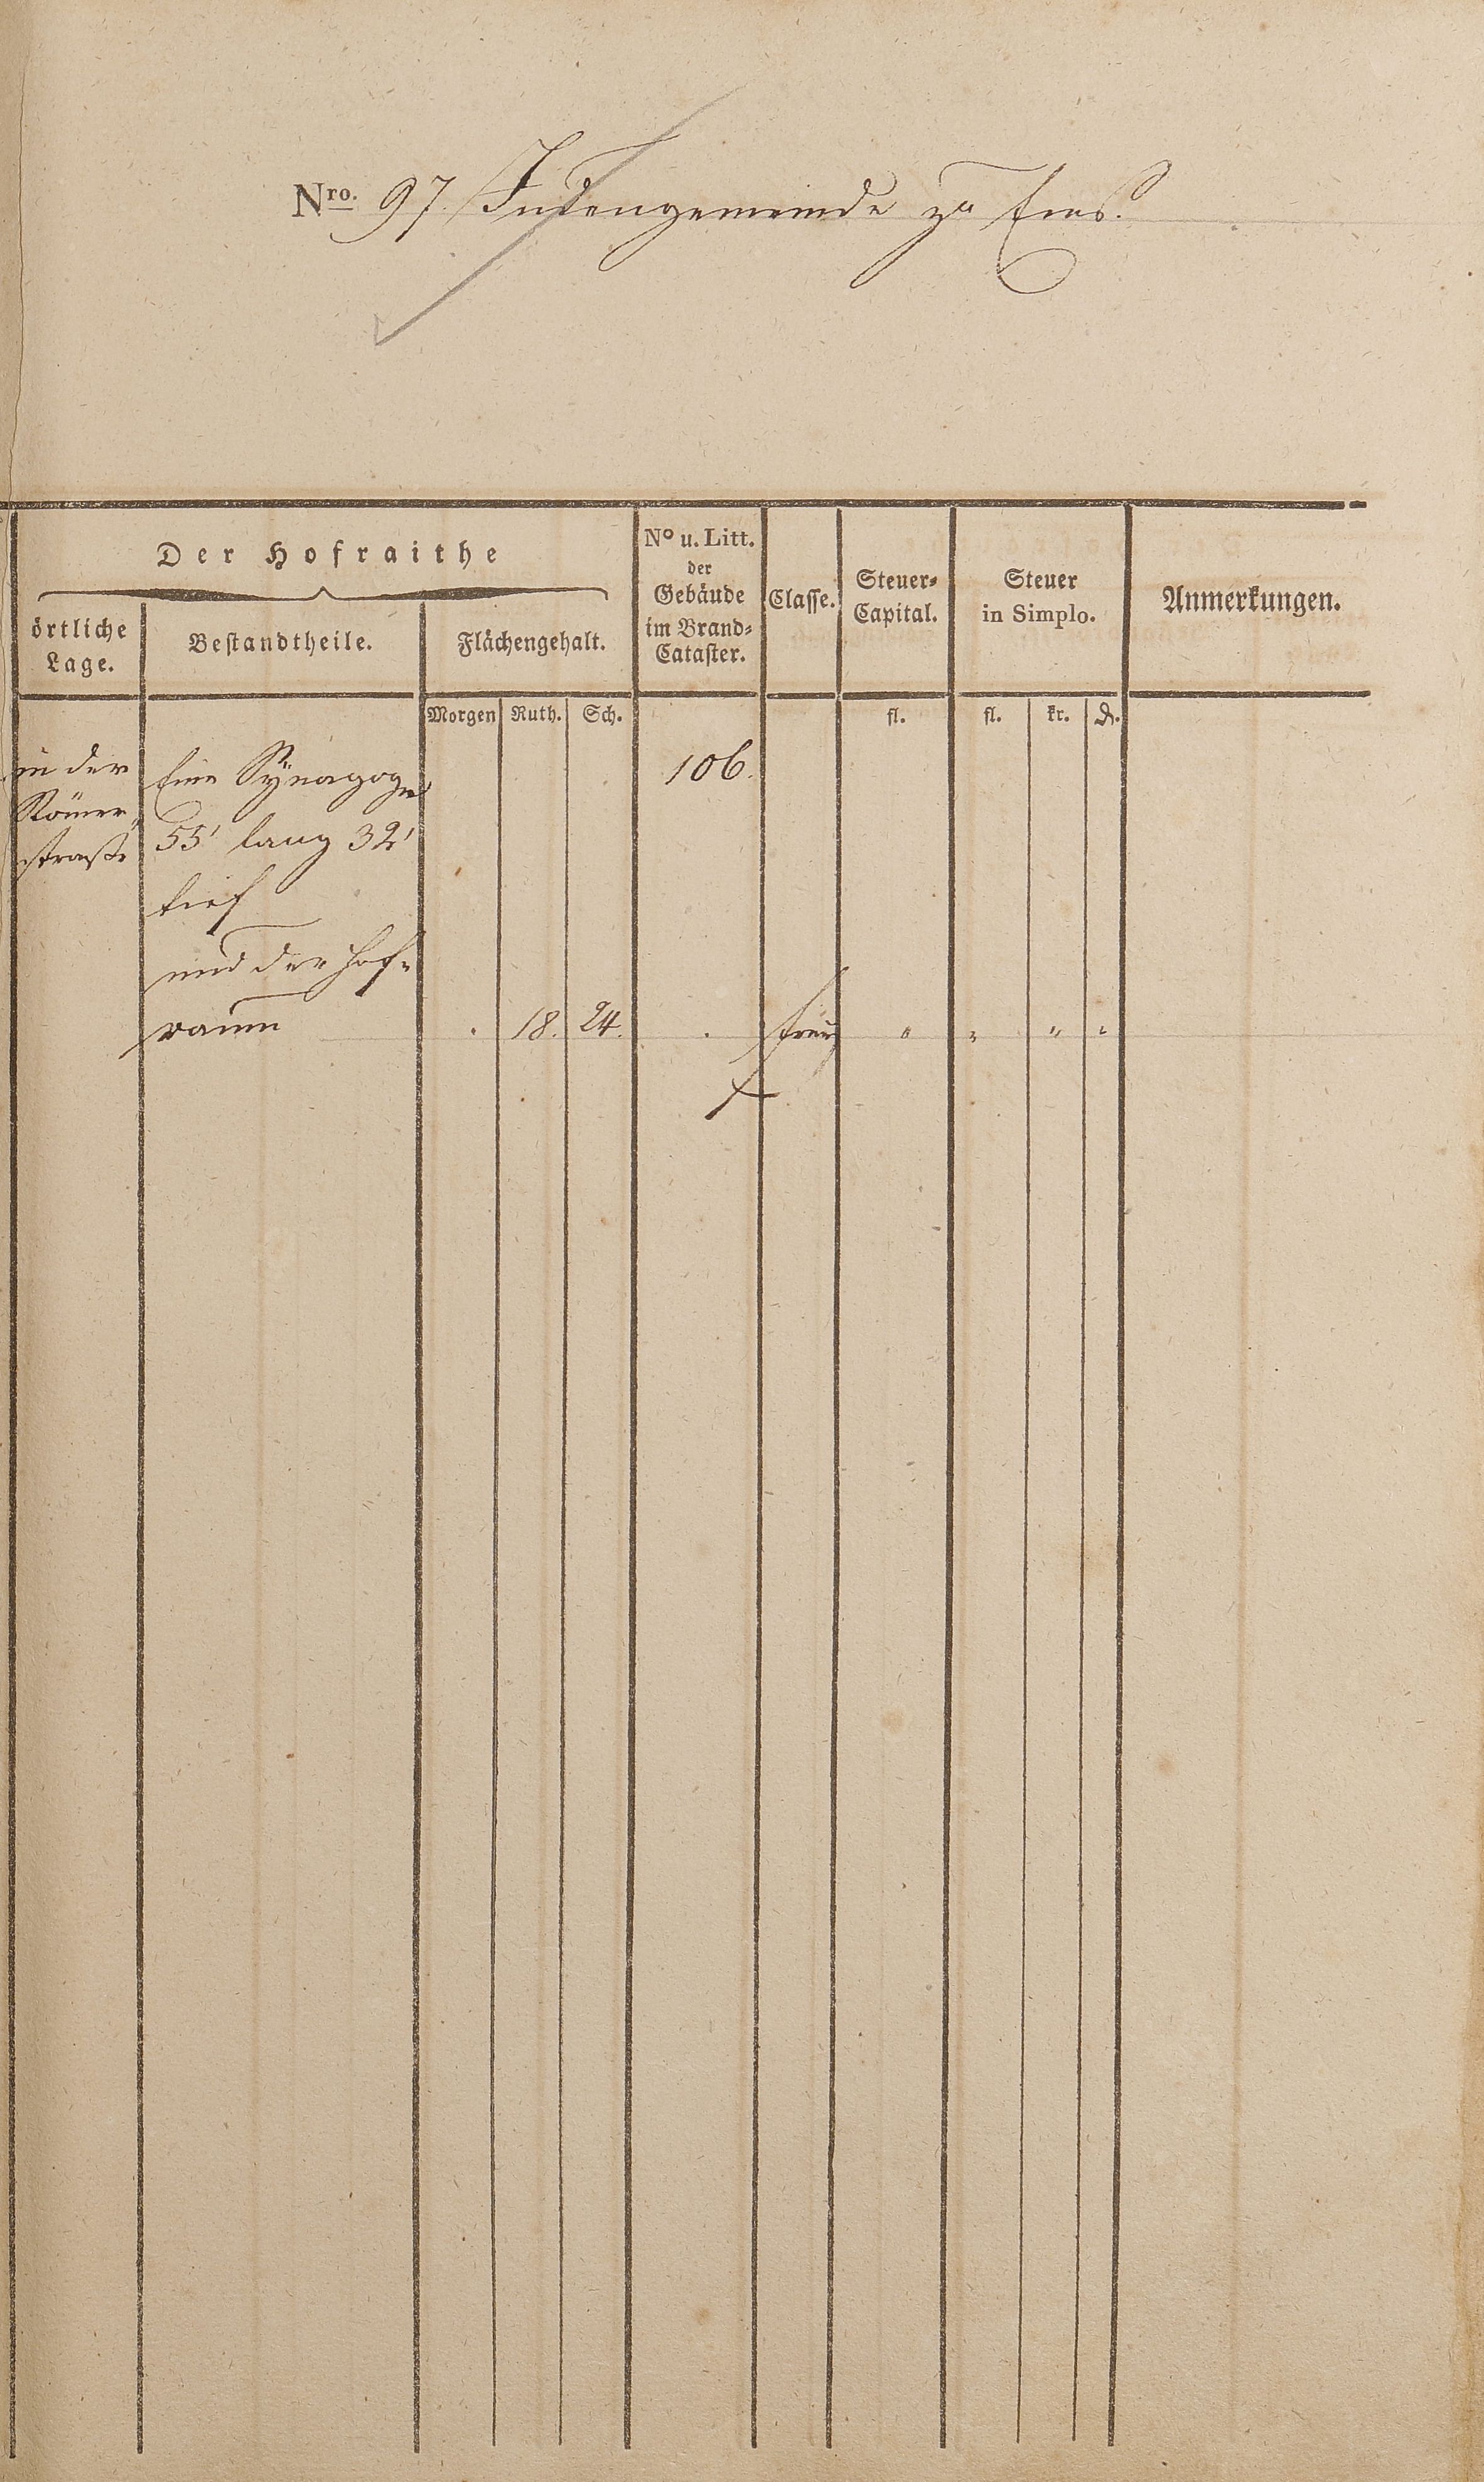 Nro. 97. Judengemeinde zu Ems.
Der Hofraithe
örtliche
Lage.
Bestandtheile.
Flächengehalt.
No u. Litt.
der
Gebäude
im Brand-
Cataster.
Classe.
Steuer-
Capital.
Steuer
in Simplo.
Anmerkungen.
Morgen Ruth. Sch. fl. fl. kr. ₰.
in der
Römer„
straße
Eine Synagoge
55' lang 32'
tief
und der Hof-
raum
106.
. 18. 24. . frey " " " "